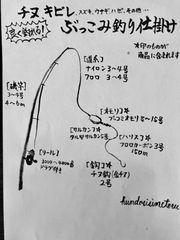 チヌ キビレ スズキ、ウナギ、ハゼ、その他…
良く釣れる!
ぶっこみ釣り仕掛け
*印のものが
商品に含まれます
[道糸]
ナイロン 3〜4号
フロロ 3〜4号
[磯竿]
3〜4号
4〜5m
[オモリ]*
ブッコミオモリ8〜15号
[サルカン]*
タル型サルカン5号
[ハリス]*
フロロカーボン3号
150m
[リール]
3000〜4000番
ドラグ付き
[鈎]*
チヌ鈎(金チヌ)
2号